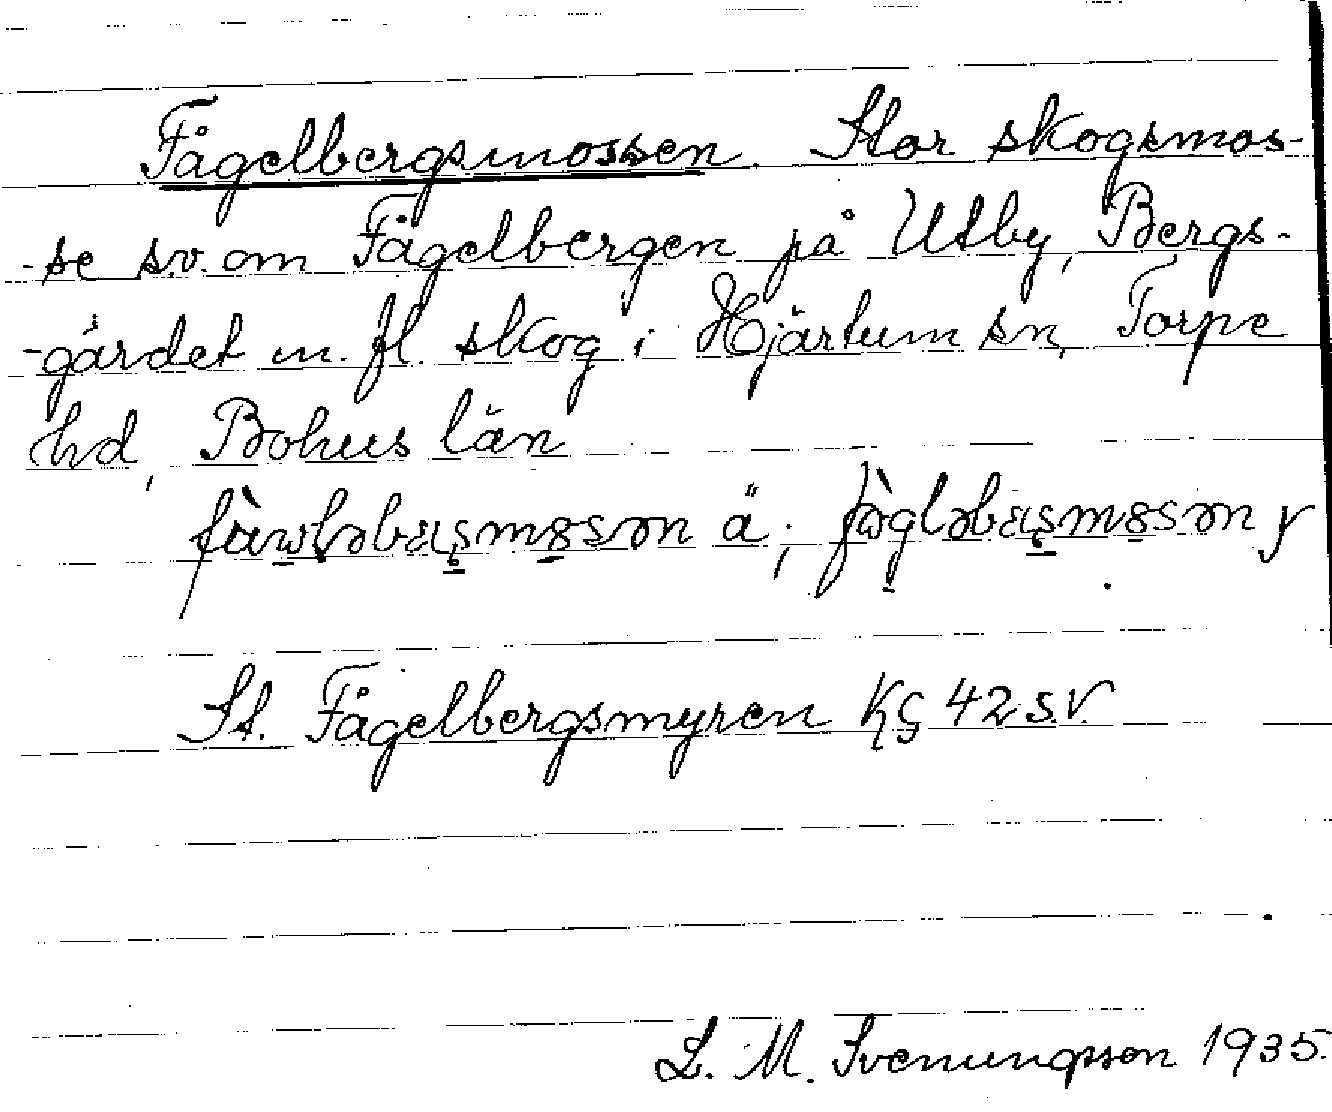 Fågelbergsmossen. Stor skogsmos-
-se sv. om Fågelbergen på Utby, Bergs-
-gärdet m. fl. skog i Hjärtum sn, Torpe
hd, Bohus län
ä; y
St. Fågelbergsmyren KG 42 SV.
L. M. Svenungsson 1935.